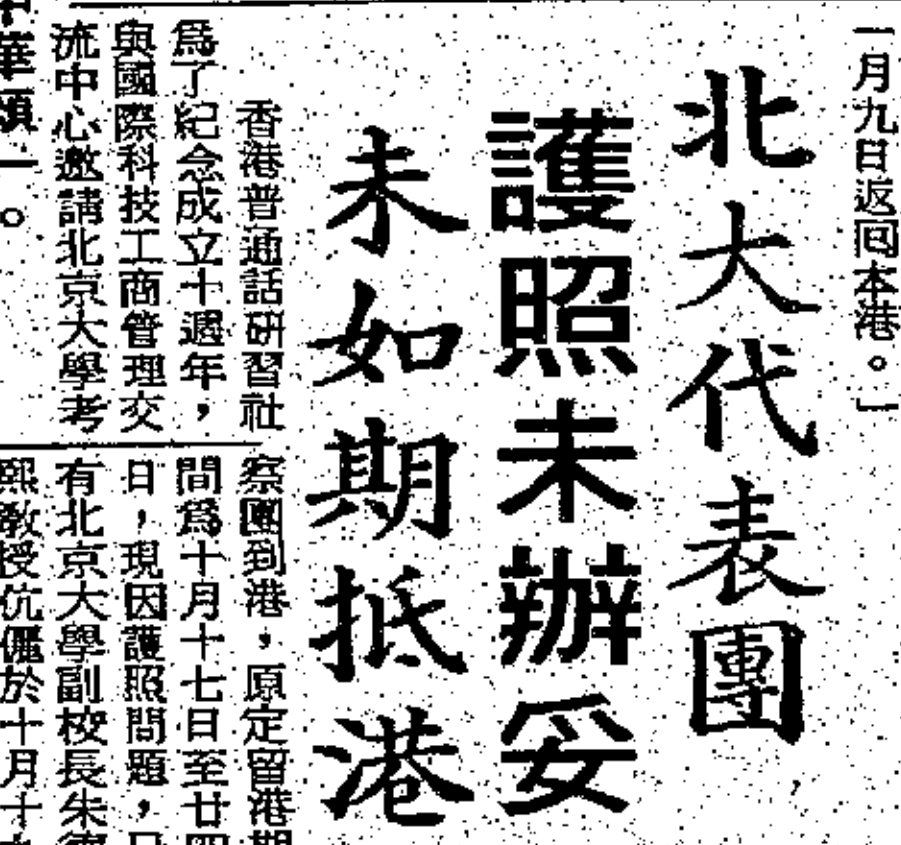 一月九日返回本港。」
北大代表團
護照未辦妥
未如期抵港
香港普通話研習社
爲了紀念成立十週年，
與國際科技工商管理交
流中心邀請北京大學考
察團到港，原定留港期
間爲十月十七日至廿四
日，現因護照問題，只
有北京大學副校長朱德
熙教授伉儷於十月十九
中華頌」。